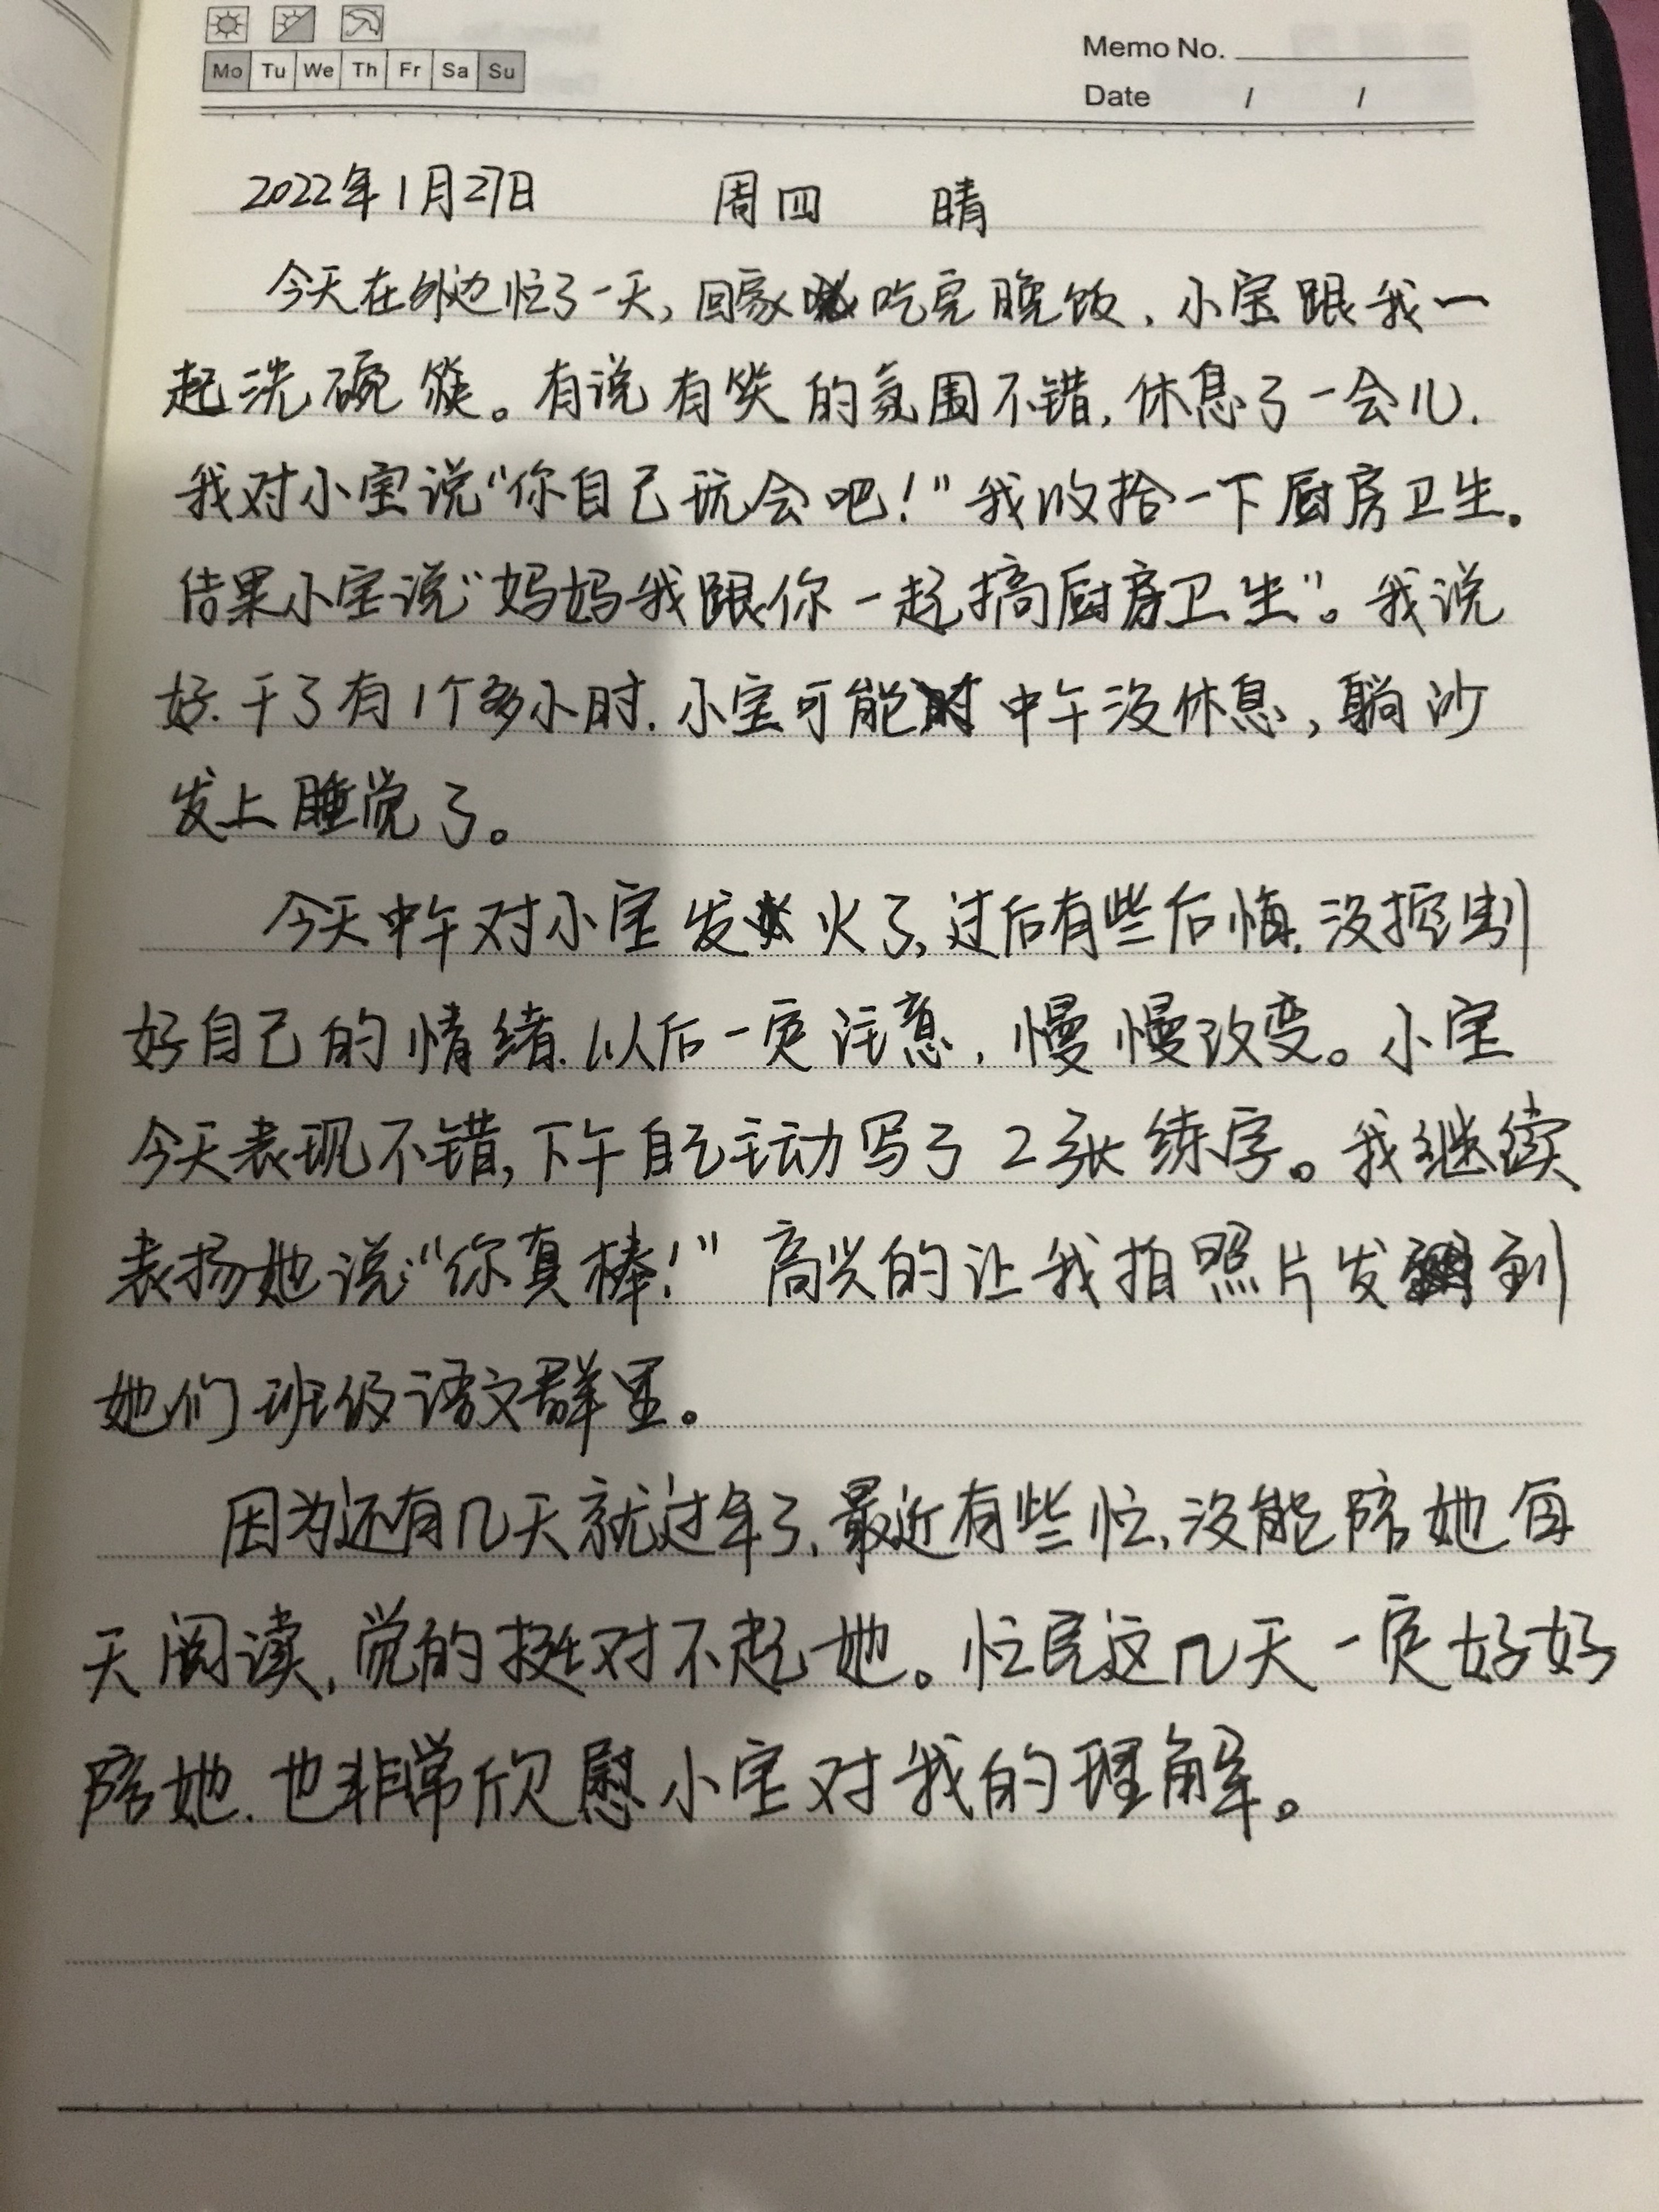 Mo Tu We Th Fr Sa Su
Memo No.
Date / /
2022年1月27日 周四 晴
今天在外边忙了一天,回家吃完晚饭,小宝跟我一
起洗碗筷。有说有笑的氛围不错,休息了一会儿.
我对小宝说“你自己玩会吧!”我收拾一下厨房卫生。
结果小宝说“妈妈我跟你一起搞厨房卫生”。我说
好.干了有1个多小时.小宝可能中午没休息,躺沙
发上睡觉了。
今天中午对小宝发火了,过后有些后悔.没控制
好自己的情绪.以后一定注意,慢慢改变。小宝
今天表现不错,下午自己主动写了2张练字。我继续
表扬她说:“你真棒!”高兴的让我拍照片发到
她们班级语文群里。
因为还有几天就过年了,最近有些忙,没能陪她每
天阅读,觉的挺对不起她。忙完这几天一定好好
陪她.也非常欣慰小宝对我的理解。